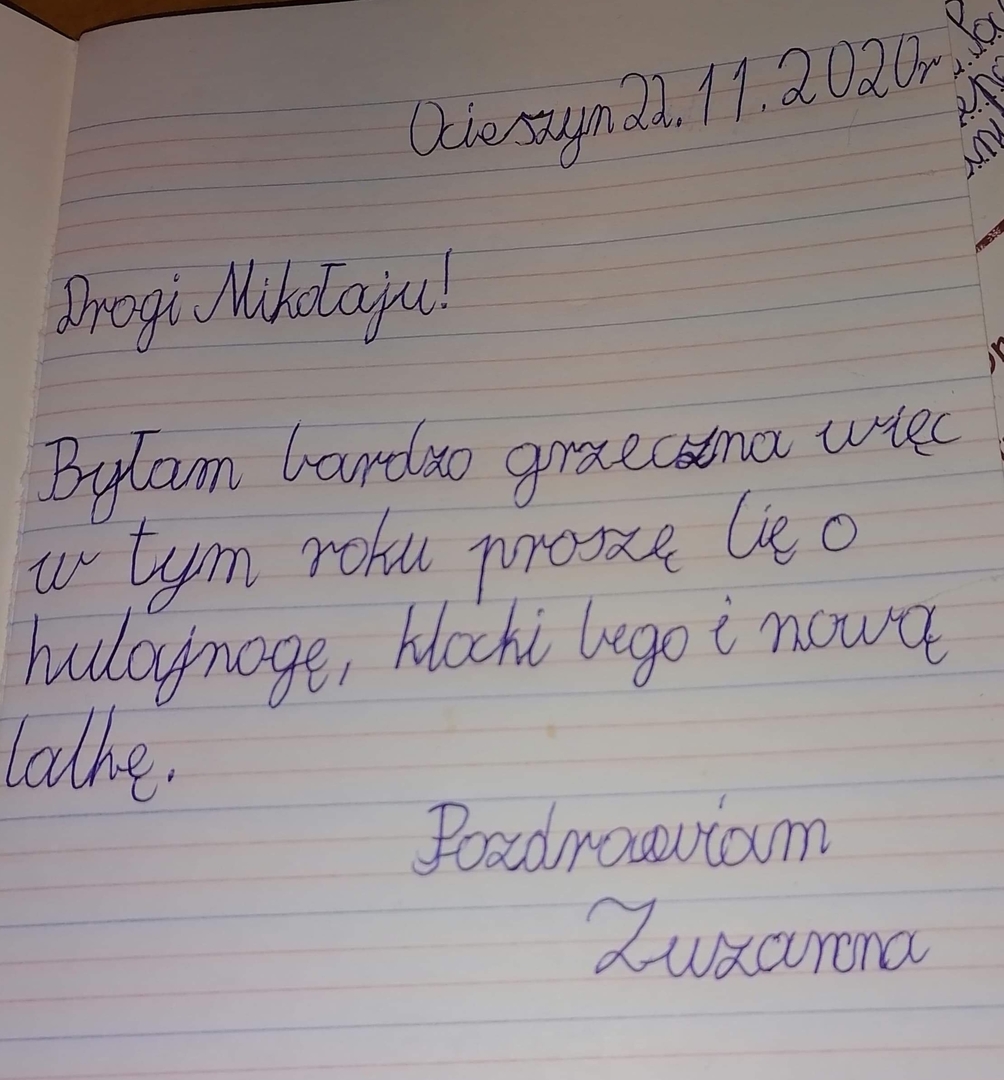 Ocieszyn 22.11.2020r
Drogi Mikołaju!
Byłam bardzo grzeczna więc
w tym roku proszę Cię o
hulajnogę, klocki lego i nową
lalkę.
Pozdrawiam
Zuzanna